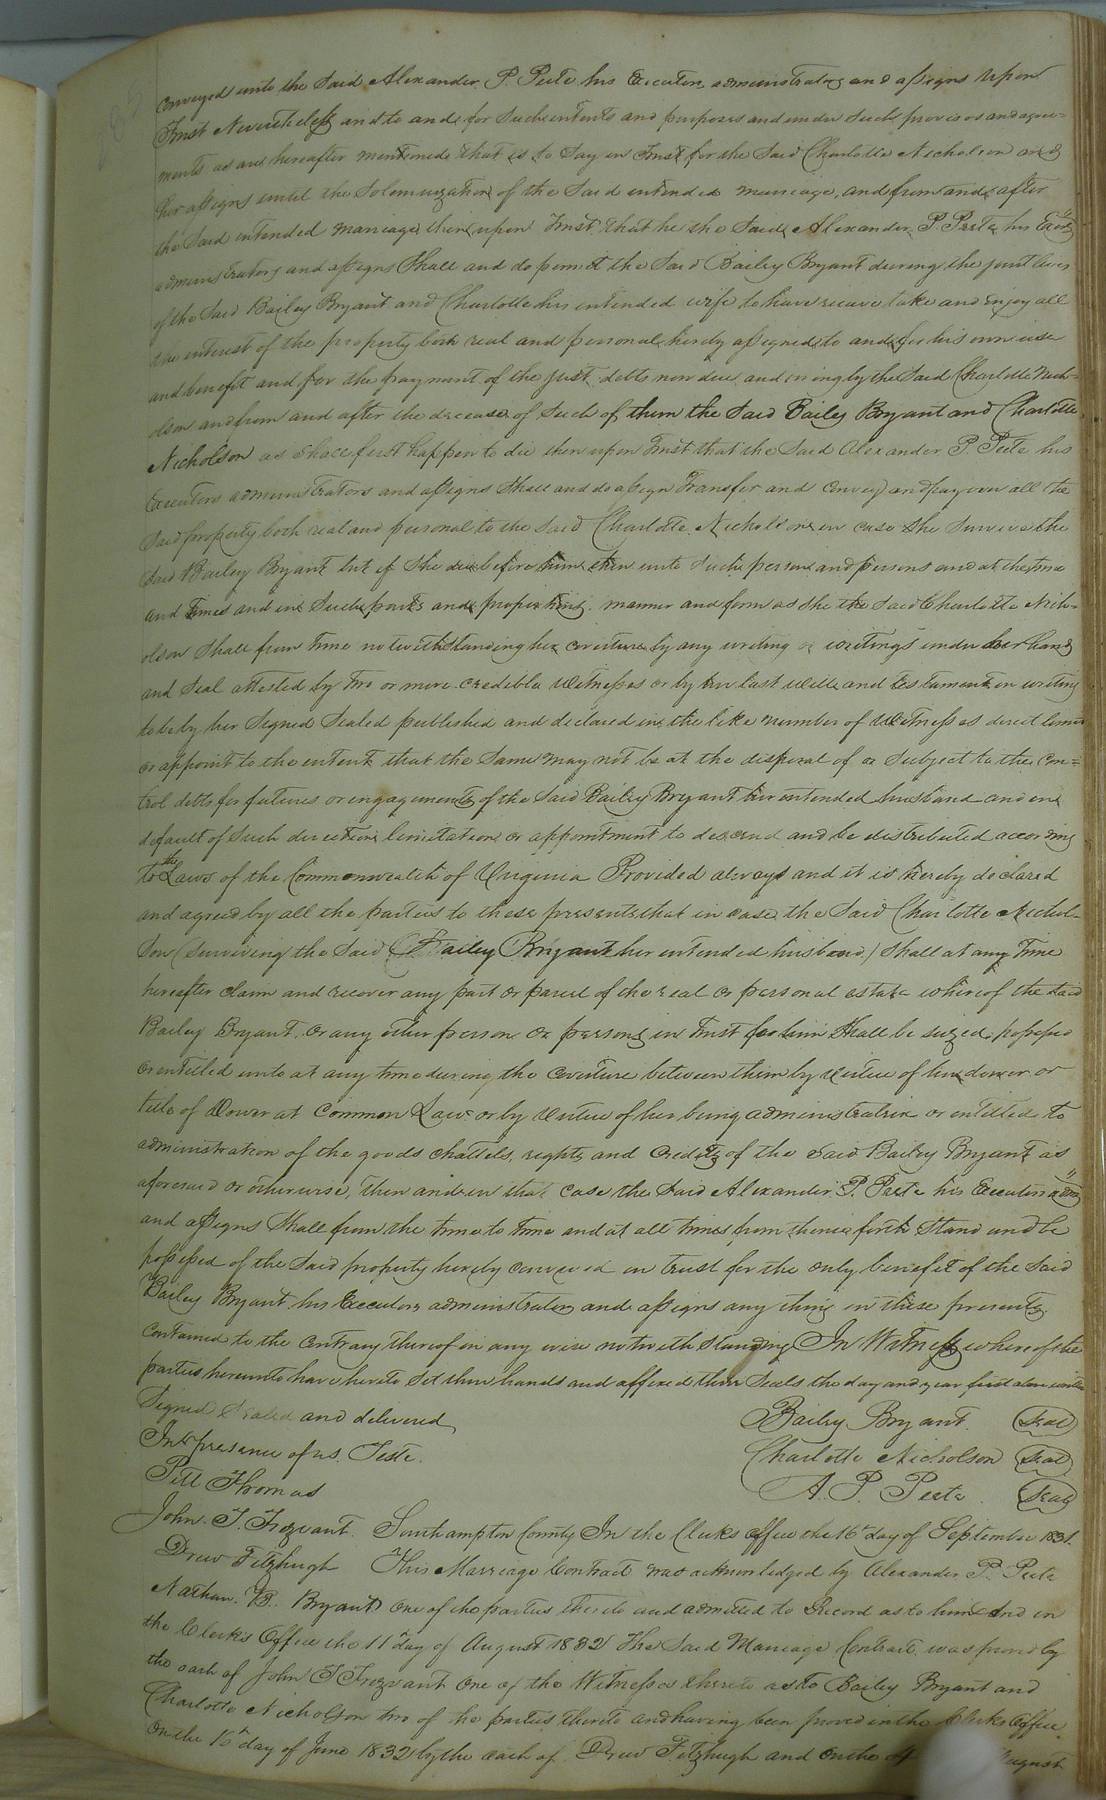 conveyed unto the Said Alexander P. Peete his Executors administrators and assigns upon
Trust Nevertheless and to and for Such intents and purposes and under Such provisoes and agree=
ments as are hereafter mentioned that is to Say in Trust for the Said Charlotte Nicholson and
her assigns until the Solemnization of the Said intended marriage, and from and after
the Said intended marriage then upon Trust that he the Said Alexander P. Peete his Exors
administrators and assigns Shall and do permit the Said Bailey Bryant during the joint lives
of the Said Bailey Bryant and Charlotte his intended wife to have receive take and enjoy all
the interest of the property both real and personal hereby assigned to and for his own use
and benefit and for the payment of the just debts now due and owing by the Said Charlotte Nich=
olson and from and after the decease of Such of them the Said Bailey Bryant and Charlotte
Nicholson as Shall first happen to die then upon Trust that the Said Alexander P. Peete his
Executors administrators and assigns Shall and do assign Transfer and Convey and pay over all the
Said property both real and personal to the Said Charlotte Nicholson in case She Survive the
Said Bailey Bryant but if She die before him then unto Such person and persons and at the time
and times and in Such parts and proportions manner and form as She the Said Charlotte Nich=
olson Shall from Time notwithstanding her coverture by any writing or writings under her hand
and Seal attested by two or more credible witnesses or by her last will and testament in writing
to be by her Signed Sealed published and declared in the like number of Witnesses direct limit
or appoint to the intent that the Same may not be at the disposal of or Subject to the Con=
trol debts forfeitures or engagements of the Said Bailey Bryant her intended husband and in
default of Such direction limitation or appointment to descend and be distributed according
to the Laws of the Commonwealth of Virginia Provided always and it is hereby declared
and agreed by all the parties to these presents that in case the Said Charlotte Nichol=
son (surviving the Said Bailey Bryant her intended husband) Shall at any Time
hereafter claim and recover any part or parcel of the real or personal estate whereof the Said
Bailey Bryant or any other person or persons in trust for him Shall be seized possessed
or entitled unto at any time during the coverture between them by virtue of her dower or
title of Dower at Common Law or by virtue of her being administratrix or entitled to
administration of the goods chattels, rights and Credits of the Said Bailey Bryant as
aforesaid or otherwise, then and in that case the Said Alexander P. Peete his Executors admrs
and assigns Shall from the time to time and at all times from thence forth Stand and be
possessed of the Said property hereby conveyed in trust for the only benefit of the Said
Bailey Bryant his Executors administrators and assigns any thing in these presents
contained to the contrary thereof in any wise notwithstanding In Witness whereof the
parties hereunto have hereto Set their hands and affixed their Seals the day and year first above written
Signed Sealed and delivered Bailey Bryant (Seal)
In presence of us Teste. Charlotte Nicholson (Seal)
Pitt Thomas A. P. Peete (Seal)
John T. Trezvant. Southampton County In the Clerks office the 16th day of September 1831.
Drew Fitzhugh This Marriage Contract was acknowledged by Alexander P. Peete
Nathan B. Bryant One of the parties thereto and admitted to Record as to him And in
the Clerk's Office the 11th day of August 1832 The Said Marriage Contract was proved by
the oath of John T Trezvant One of the Witnesses thereto as to Bailey Bryant and
Charlotte Nicholson two of the parties thereto and having been proved in the Clerks Office
On the 16th day of June 1832 by the oath of Drew Fitzhugh and on the August